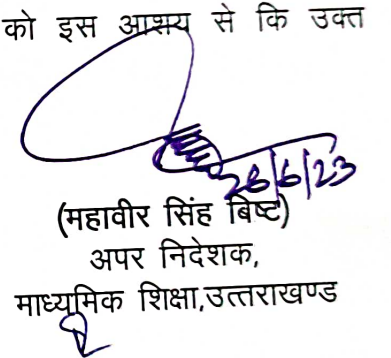 को इस आशय से कि उक्त
28/6/23
(महावीर सिंह बिष्ट)
अपर निदेशक,
माध्यमिक शिक्षा,उत्तराखण्ड